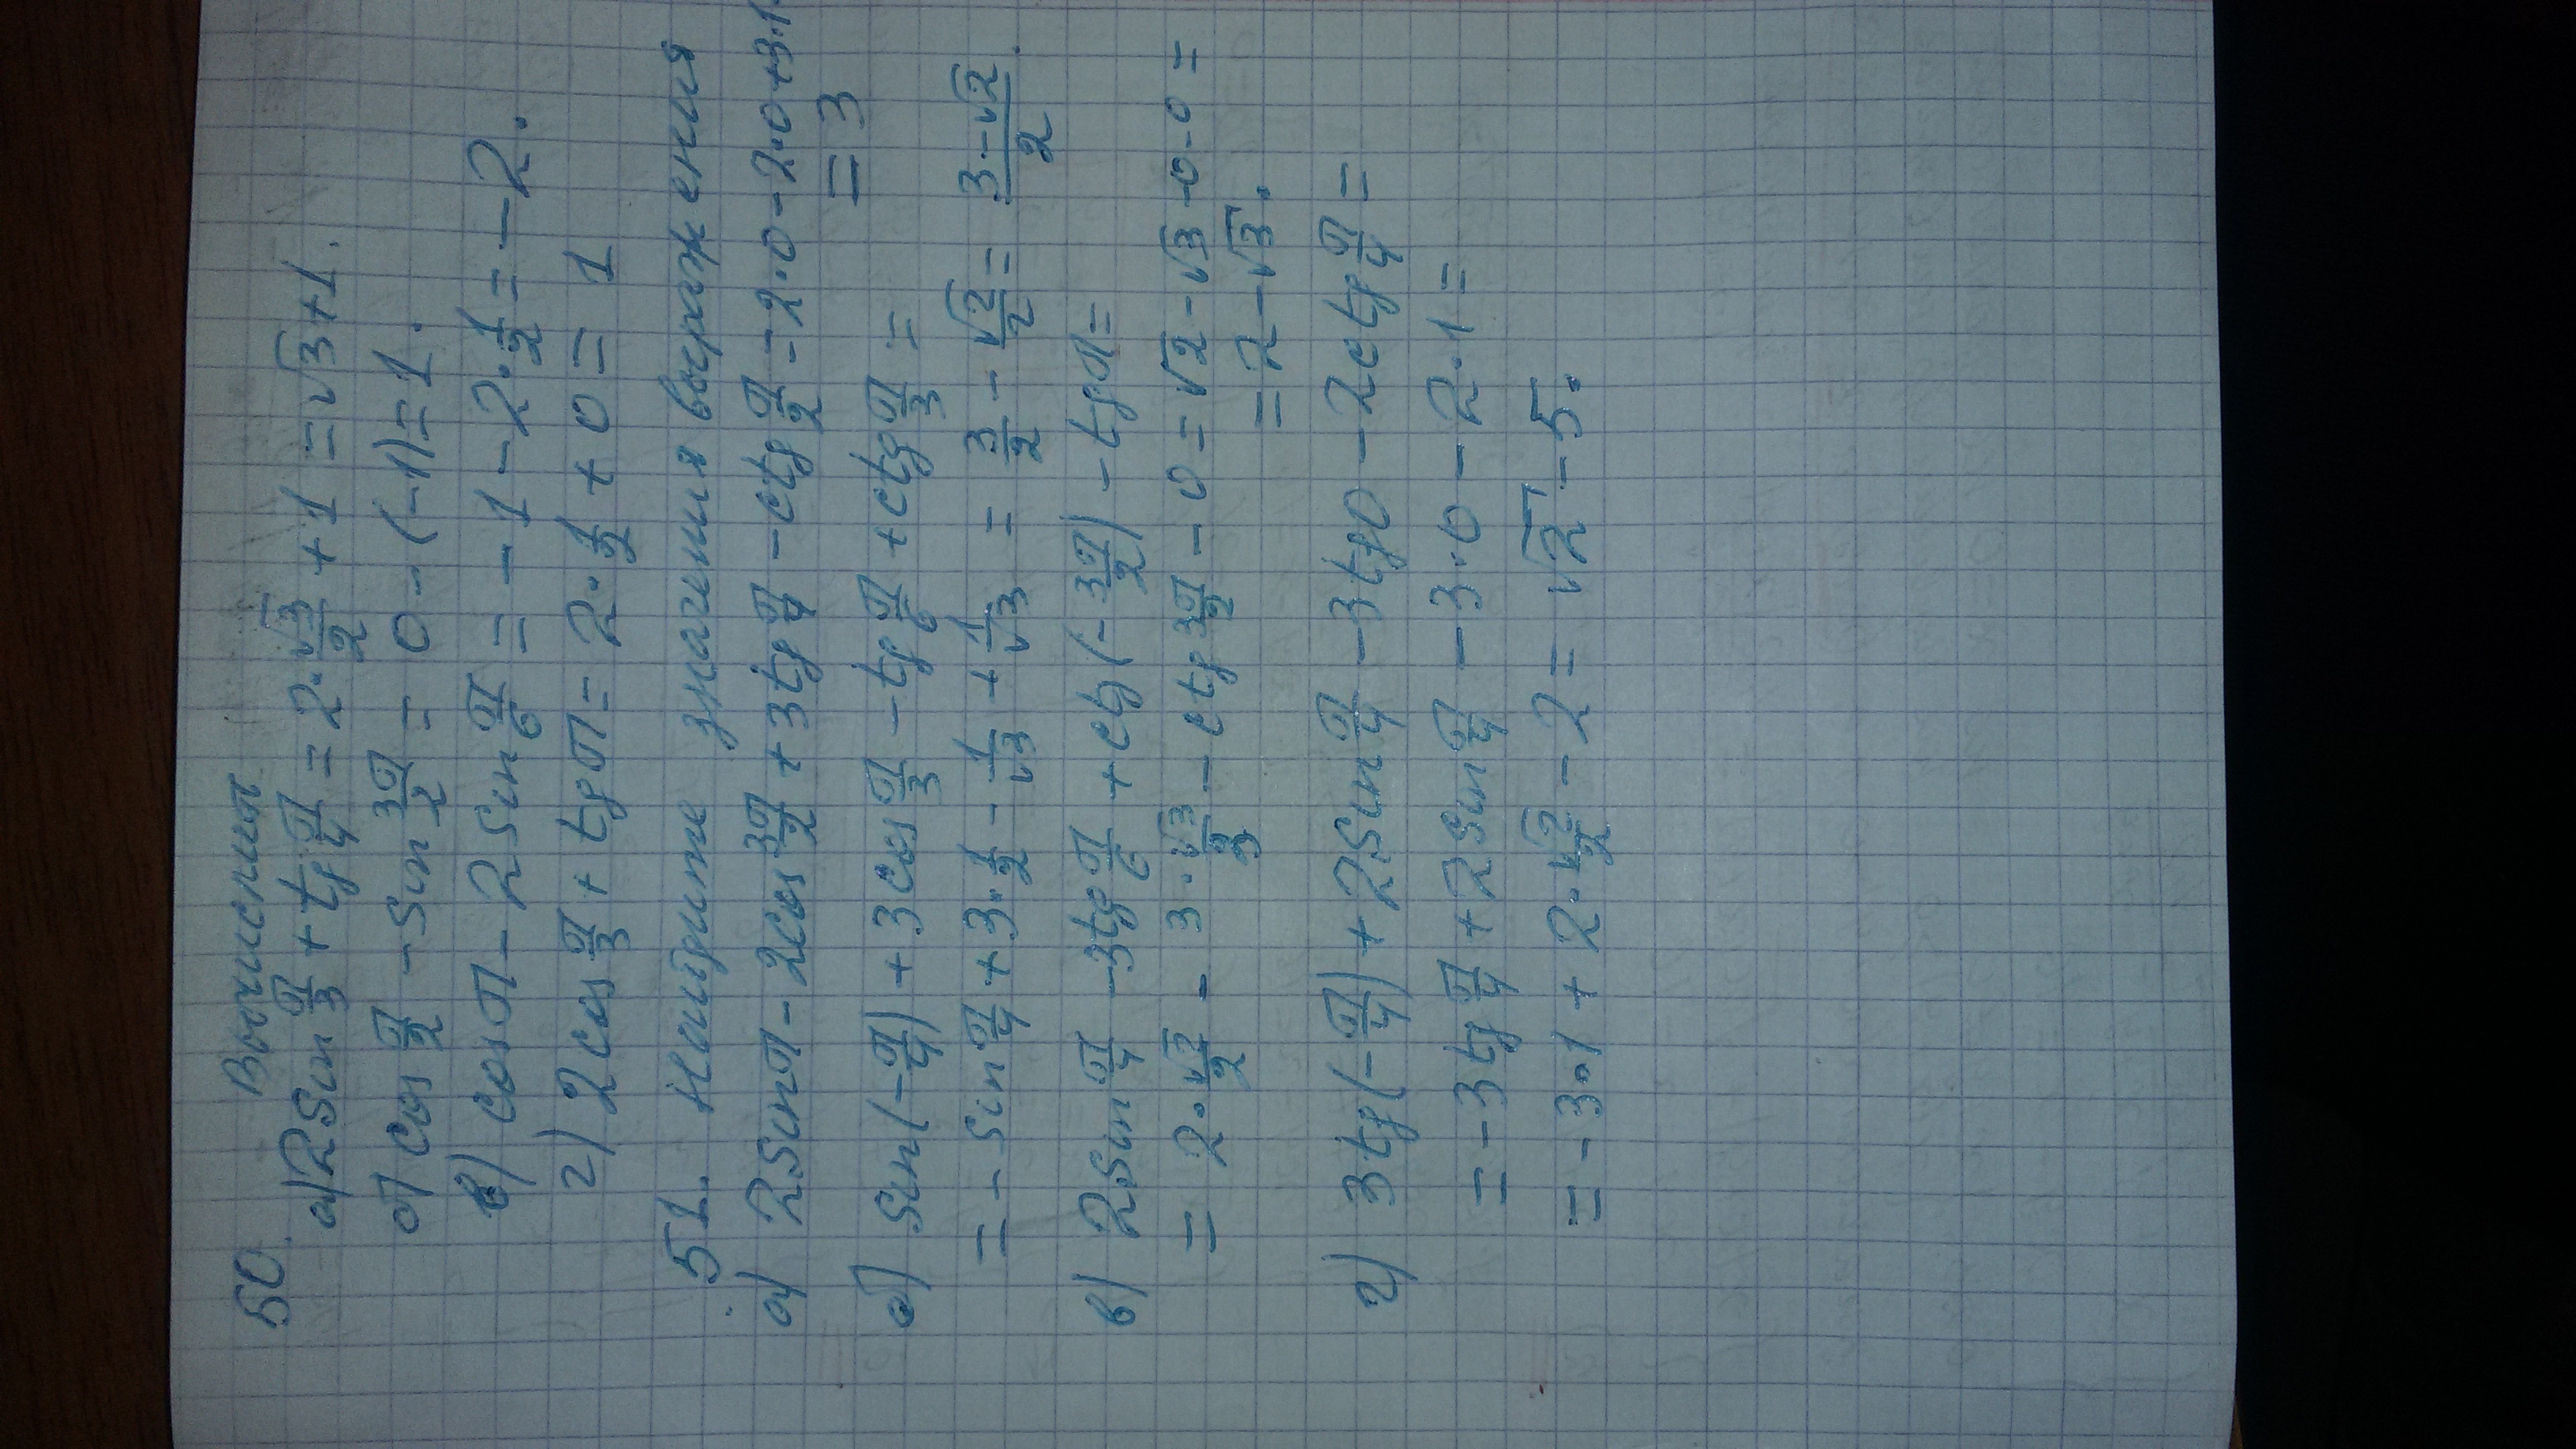 50. Вычислить
а) 2 sin π/3 + tg π/4 = 2·√3/2 + 1 = √3+1.
б) cos π/2 - sin 3π/2 = 0 - (-1) = 1.
в) cos π - 2 sin π/6 = -1 - 2·1/2 = -2.
г) 2 cos π/3 + tg π = 2·1/2 + 0 = 1
51. Найдите значения выражения
а) 2 sin π - 2cos 3π/2 + 3tg π/4 - ctg π/2 = 2·0 - 2·0 + 3·1
= 3
б) sin(-π/4) + 3 cos π/3 - tg π/6 + ctg π/3 =
= - sin π/4 + 3·1/2 - 1/√3 + 1/√3 = 3/2 - √2/2 = (3-√2)/2.
в) 2 sin π/4 - 3tg π/6 + ctg(-3π/2) - tg π =
= 2·√2/2 - 3·√3/3 - ctg 3π/2 - 0 = √2 - √3 - 0 - 0 =
= 2 - √3.
г) 3tg(-π/4) + 2 sin π/4 - 3tg0 - 2ctg π/4 =
= -3tg π/4 + 2 sin π/4 - 3·0 - 2·1 =
= -3·1 + 2·√2/2 - 2 = √2 - 5.